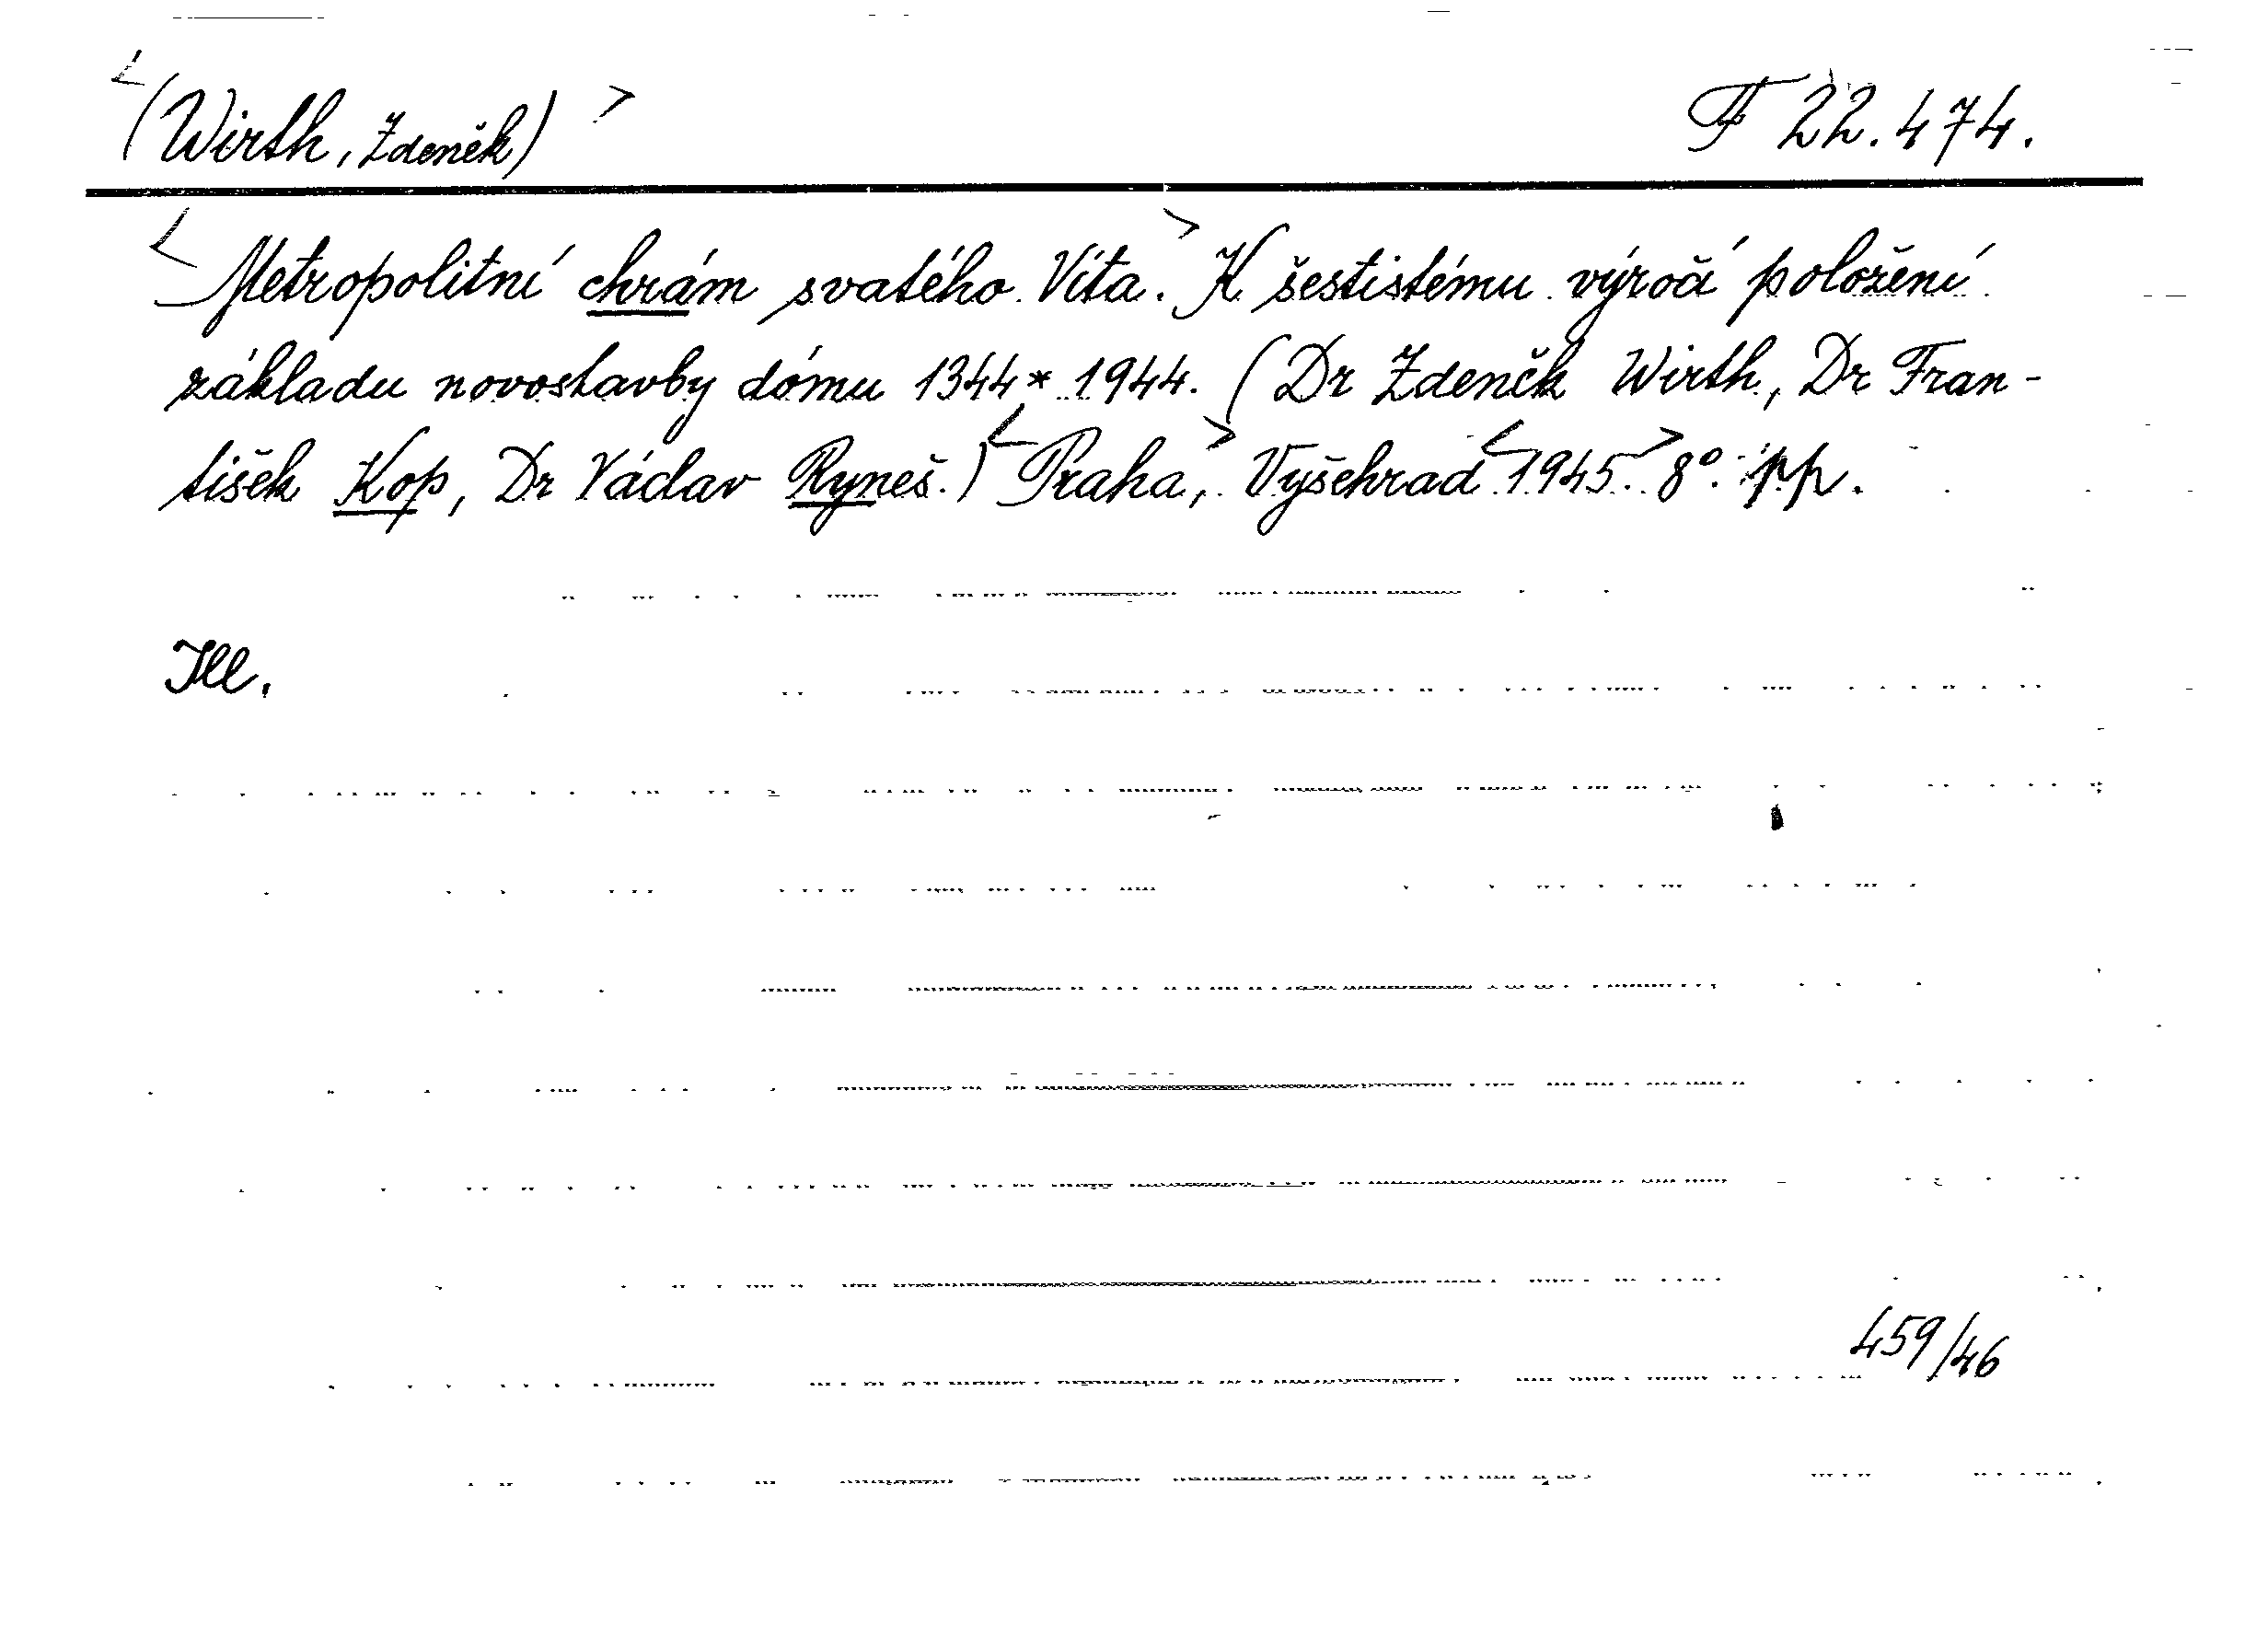 <(Wirth, Zdeněk)> F 22.474.
<Metropolitní chrám svatého Víta.> K šestistému výročí položení
základu novostavby dómu 1344*1944. (Dr Zdeněk Wirth, Dr Fran-
tišek Kop, Dr Václav Ryneš.) <Praha,> Vyšehrad <1945.> 8°. pp.
Ill.
459/46